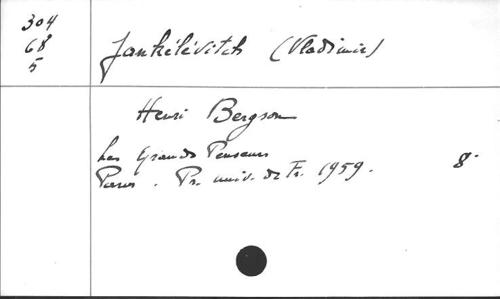 304
68
5
Jankélévitch (Vladimir)
Henri Bergson
Les Grands Penseurs
Paris. Pr. univ. de Fr. 1959. 8°